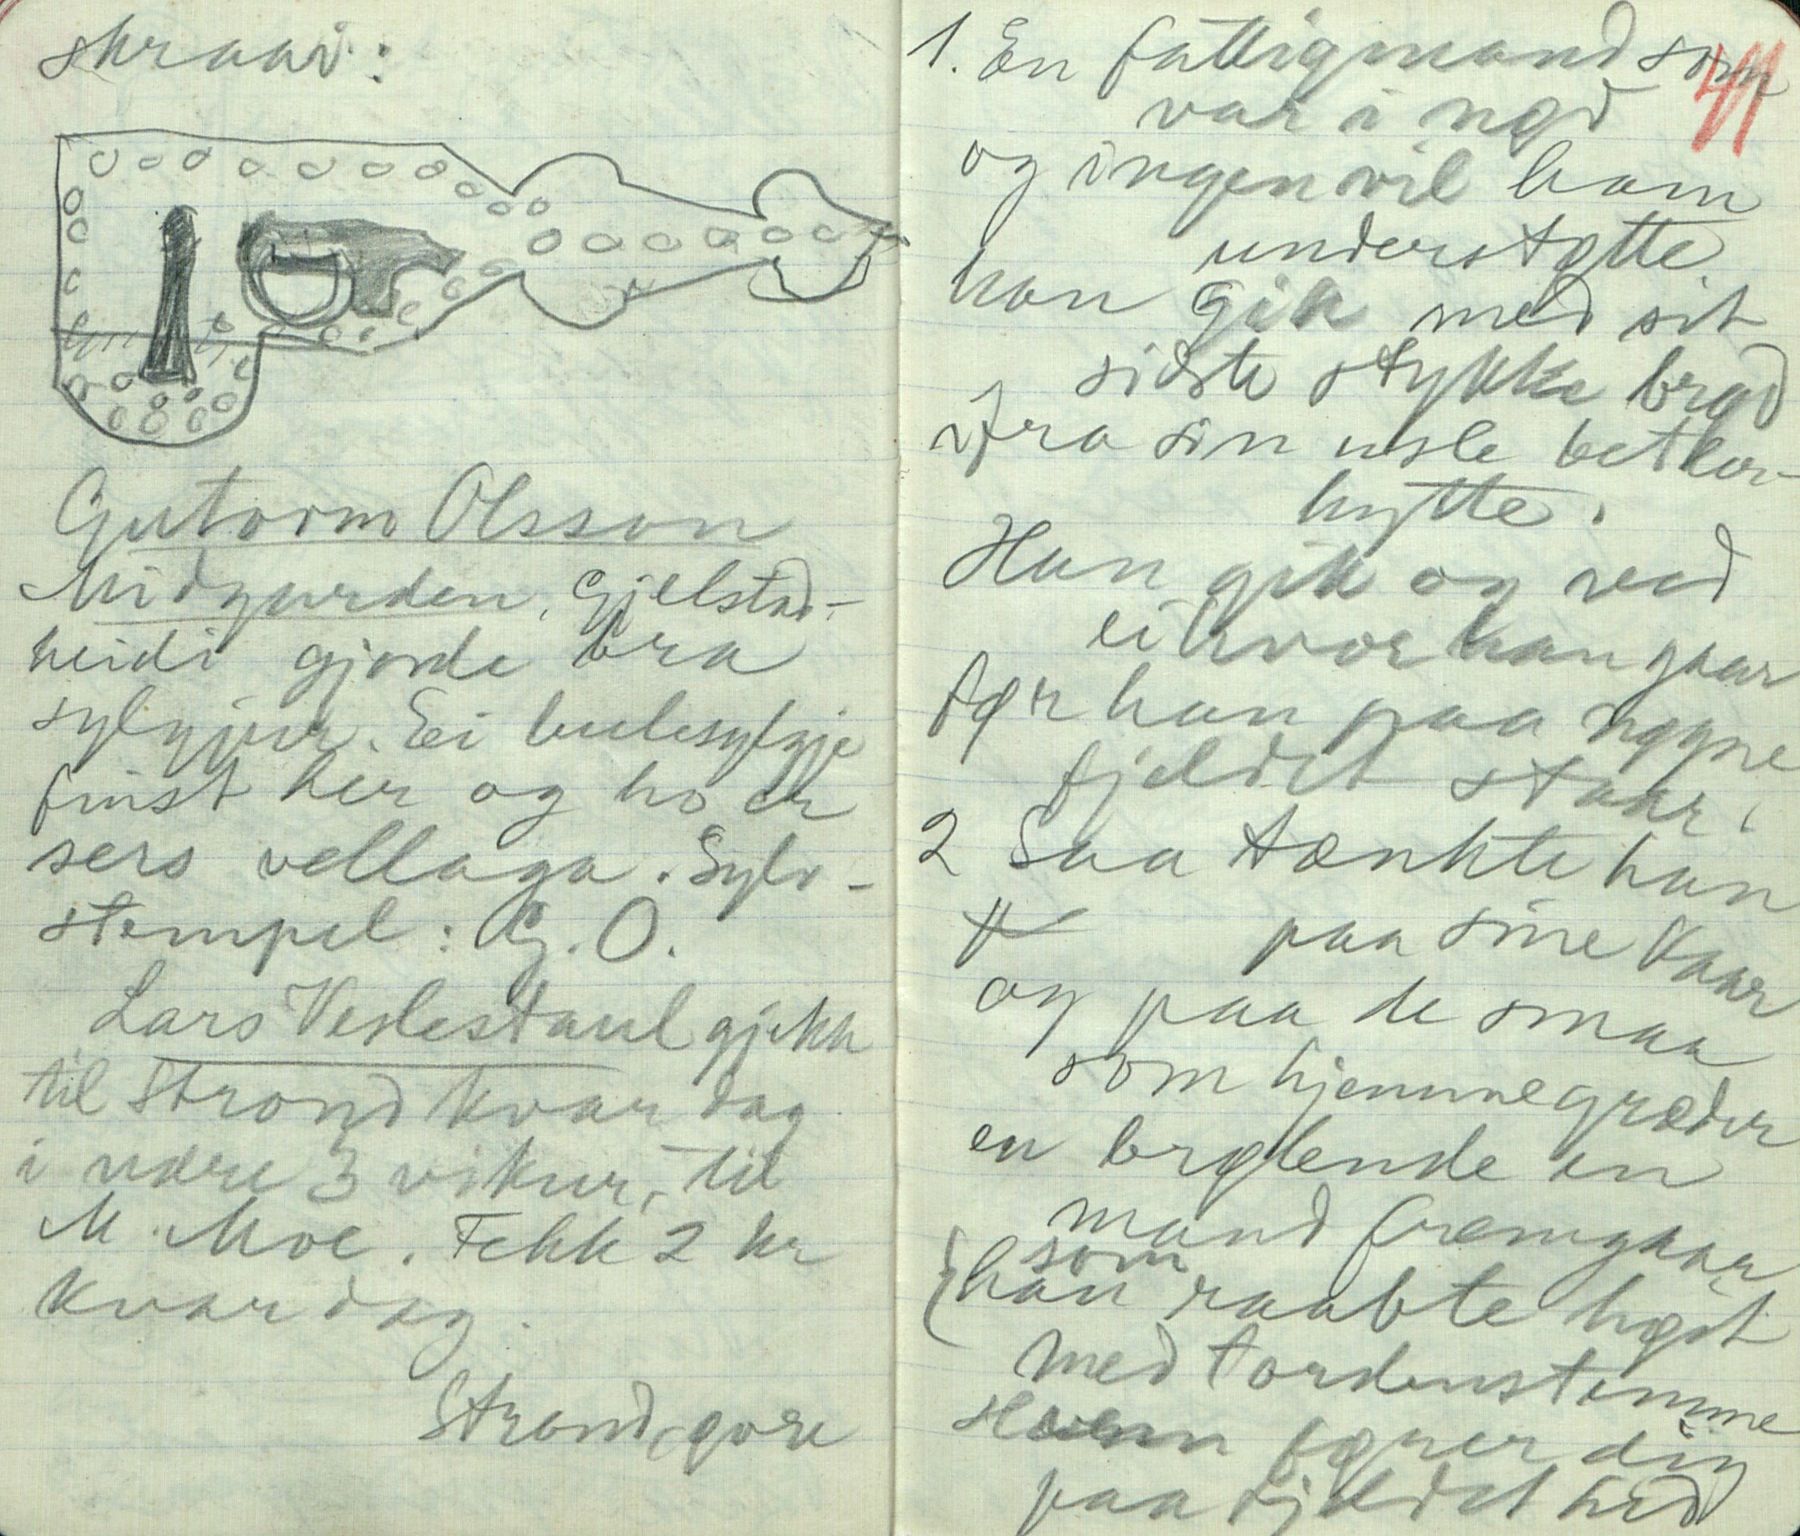 skraai:
Gutorm Olsson
Midgarden, Gjelstad-
heidi gjorde bra
sylgjur. Ei bulesylgje
finst her og ho er
sers vellaga. Sylv-
stempel: G. O.
Lars Veslestaul gjekk
til Strond kvar dag
i være 3 vikur, til
M. Moe. Fekk 2 kr
kvar dag.
Strond, øvre
41
1. En fattigmand som
var i nød
og ingen vil ham
understøtte.
han gik med sit
sidste stykke brød
fra sin usle betler-
hytte.
Han gik og ved
ei hvor han gaar
før han paa nøgne
fjeldet staar.
2 Saa tænkte han
paa sine kaar
og paa de smaa
som hjemme græder
en brølende en
mand fremgaar
som
han raabte høit
med tordenstemme
Hvem fører dig
paa fjeldet hid